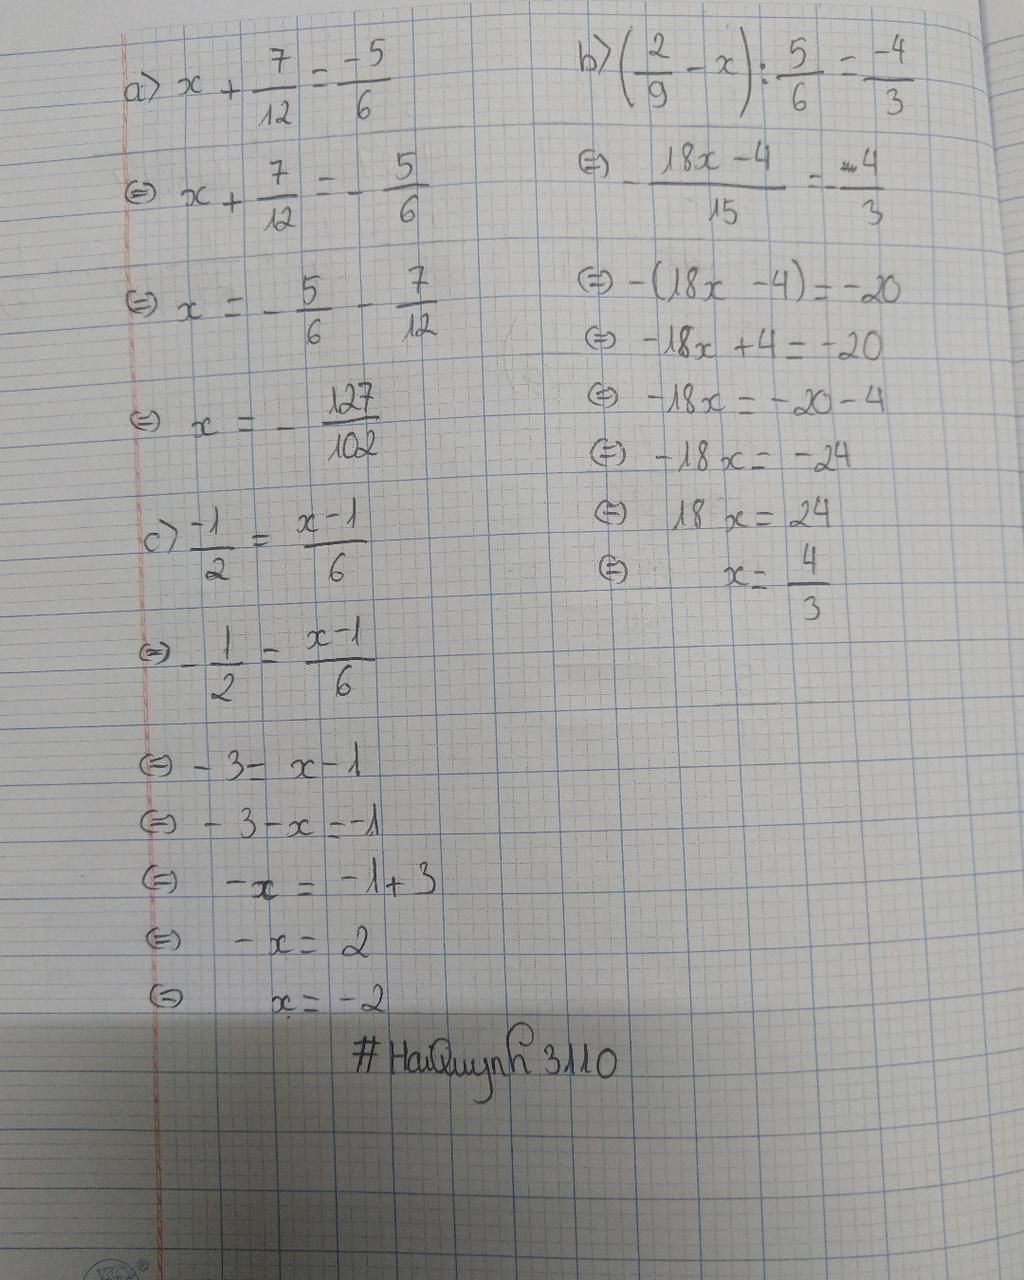 a) x + 7/12 = -5/6
⇔ x + 7/12 = - 5/6
⇔ x = - 5/6 - 7/12
⇔ x = - 127/102
c) -1/2 = x-1/6
⇔ - 1/2 = x-1/6
⇔ - 3 = x - 1
⇔ - 3 - x = -1
⇔ -x = -1 + 3
⇔ - x = 2
⇔ x = -2
b) (2/9 - x) : 5/6 = -4/3
⇔ - 18x - 4/15 = -4/3
⇔ -(18x - 4) = -20
⇔ -18x + 4 = -20
⇔ -18x = -20 - 4
⇔ -18x = -24
⇔ 18x = 24
⇔ x = 4/3
#HaiQuynh 3110
®